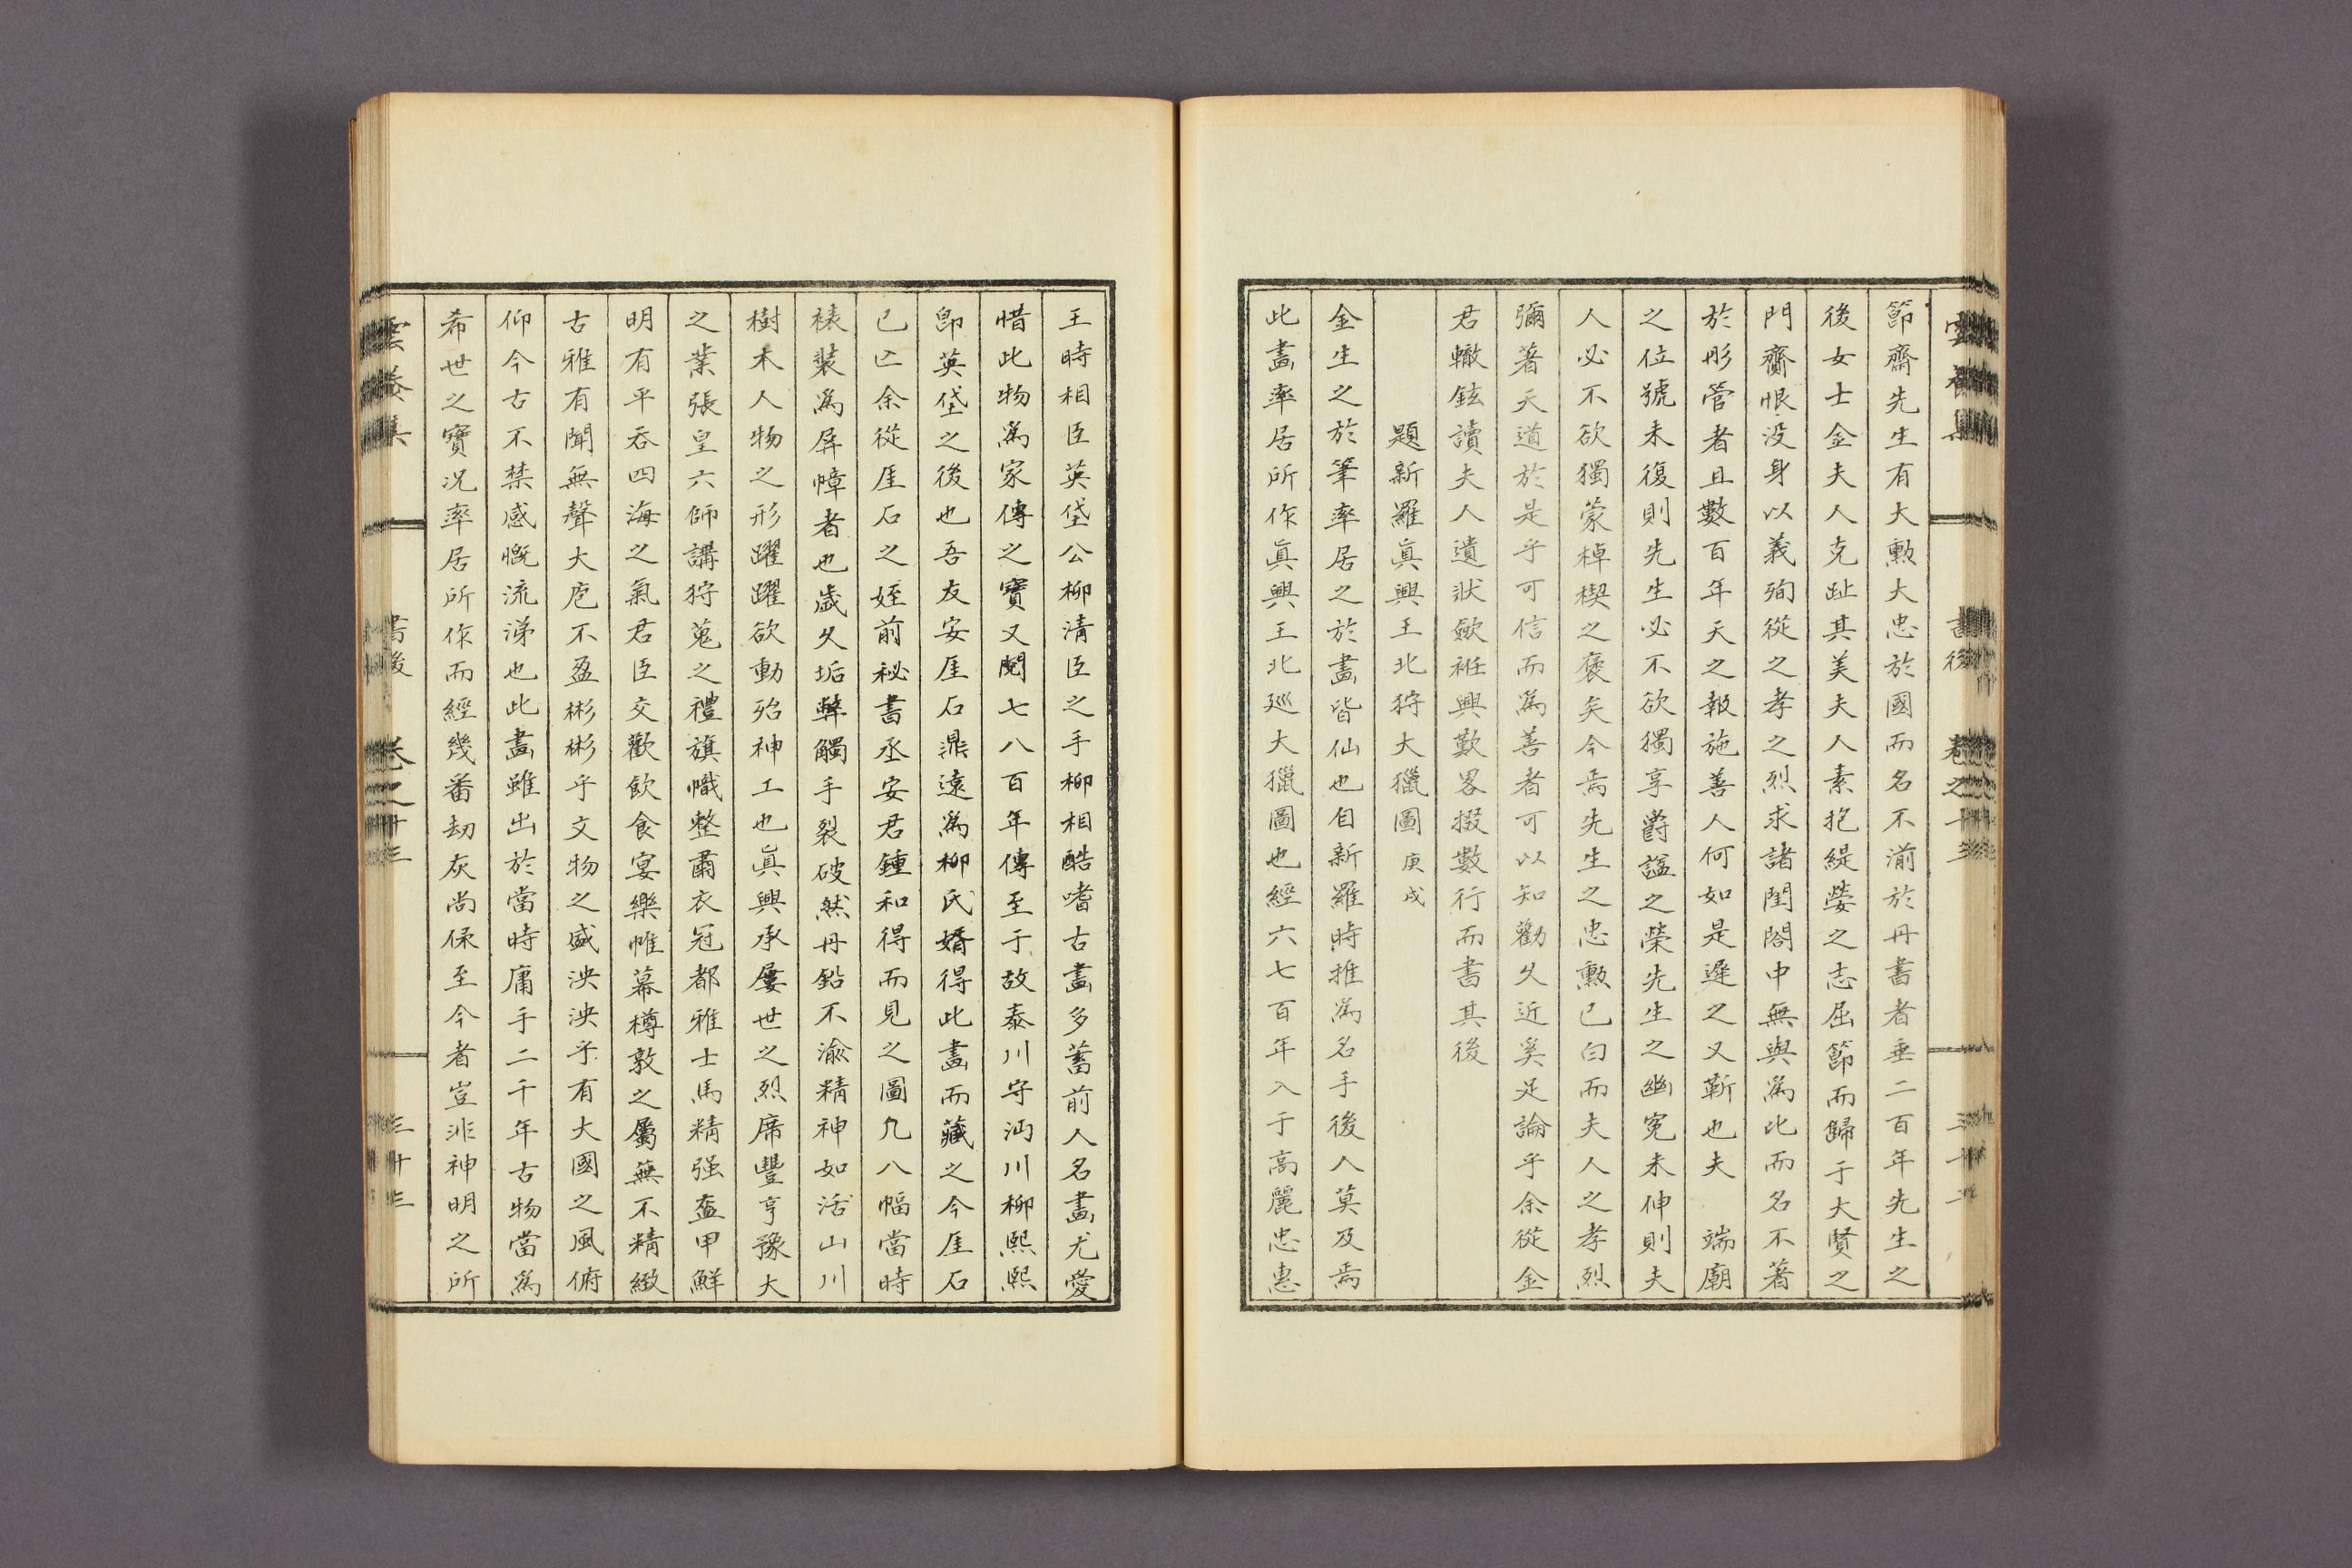 節齋先生有大勲大忠於國而名不湔於丹書者垂二百年先生之
後女士金夫人克趾其美夫人素抱緹縈之志屈節而歸于大賢之
門齎恨没身以義殉從之孝之烈求諸閨閤中無與爲比而名不著
於彤管者且數百年天之報施善人何如是遲之又靳也夫　端廟
之位號未復則先生必不欲獨享爵謚之榮先生之幽寃未伸則夫
人必不欲獨蒙棹楔之褒矣今焉先生之忠勲已白而夫人之孝烈
彌著天道於是乎可信而爲善者可以知勸久近奚足論乎余從金
君轍鉉讀夫人遺狀歛袵興歎畧掇數行而書其後
題新羅眞興王北狩大獵圖 庚戌
金生之於筆率居之於畵皆仙也自新羅時推爲名手後人莫及焉
此畵率居所作眞興王北巡大獵圖也經六七百年入于高麗忠惠
王時相臣英垡公柳清臣之手柳相酷嗜古畵多蓄前人名畵尤愛
惜此物爲家傳之寶又閱七八百年傳至于故泰川守沔川柳熙熙
卽英垡之後也吾友安厓石鼎遠爲柳氏婿得此畵而藏之今厓石
已亡余從厓石之姪前秘書丞安君鍾和得而見之圖凡八幅當時
裱裝爲屏幛者也歲久垢弊觸手裂破然丹鉛不渝精神如活山川
樹木人物之形躍躍欲動殆神工也眞興承屢世之烈席豐亨豫大
之業張皇六師講狩蒐之禮旗幟整肅衣冠都雅士馬精强盔甲鮮
明有平呑四海之氣君臣交歡飮食宴樂帷幕樽敦之屬無不精緻
古雅有聞無聲大庖不盈彬彬乎文物之盛泱泱乎有大國之風俯
仰今古不禁感慨流涕也此畵雖出於當時庸手二千年古物當爲
希世之寶况率居所作而經幾番刼灰尚保至今者豈非神明之所
書後
卷之十三
三十三